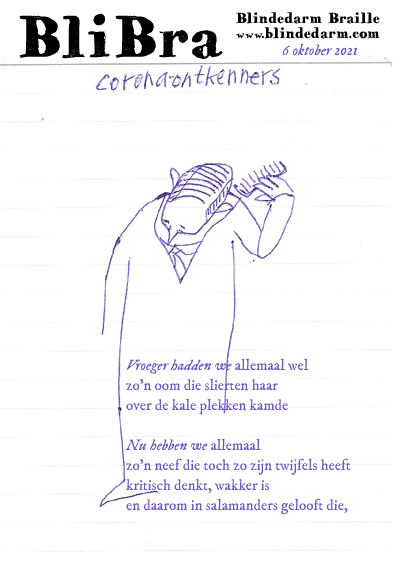 BliBra
Blindedarm Braille
www.blindedarm.com
6 oktober 2021
coronaontkenners
Vroeger hadden we allemaal wel
zo'n oom die slierten haar
over de kale plekken kamde
Nu hebben we allemaal
zo'n neef die toch zo zijn twijfels heeft
kritisch denkt, wakker is
en daarom in salamanders gelooft die,